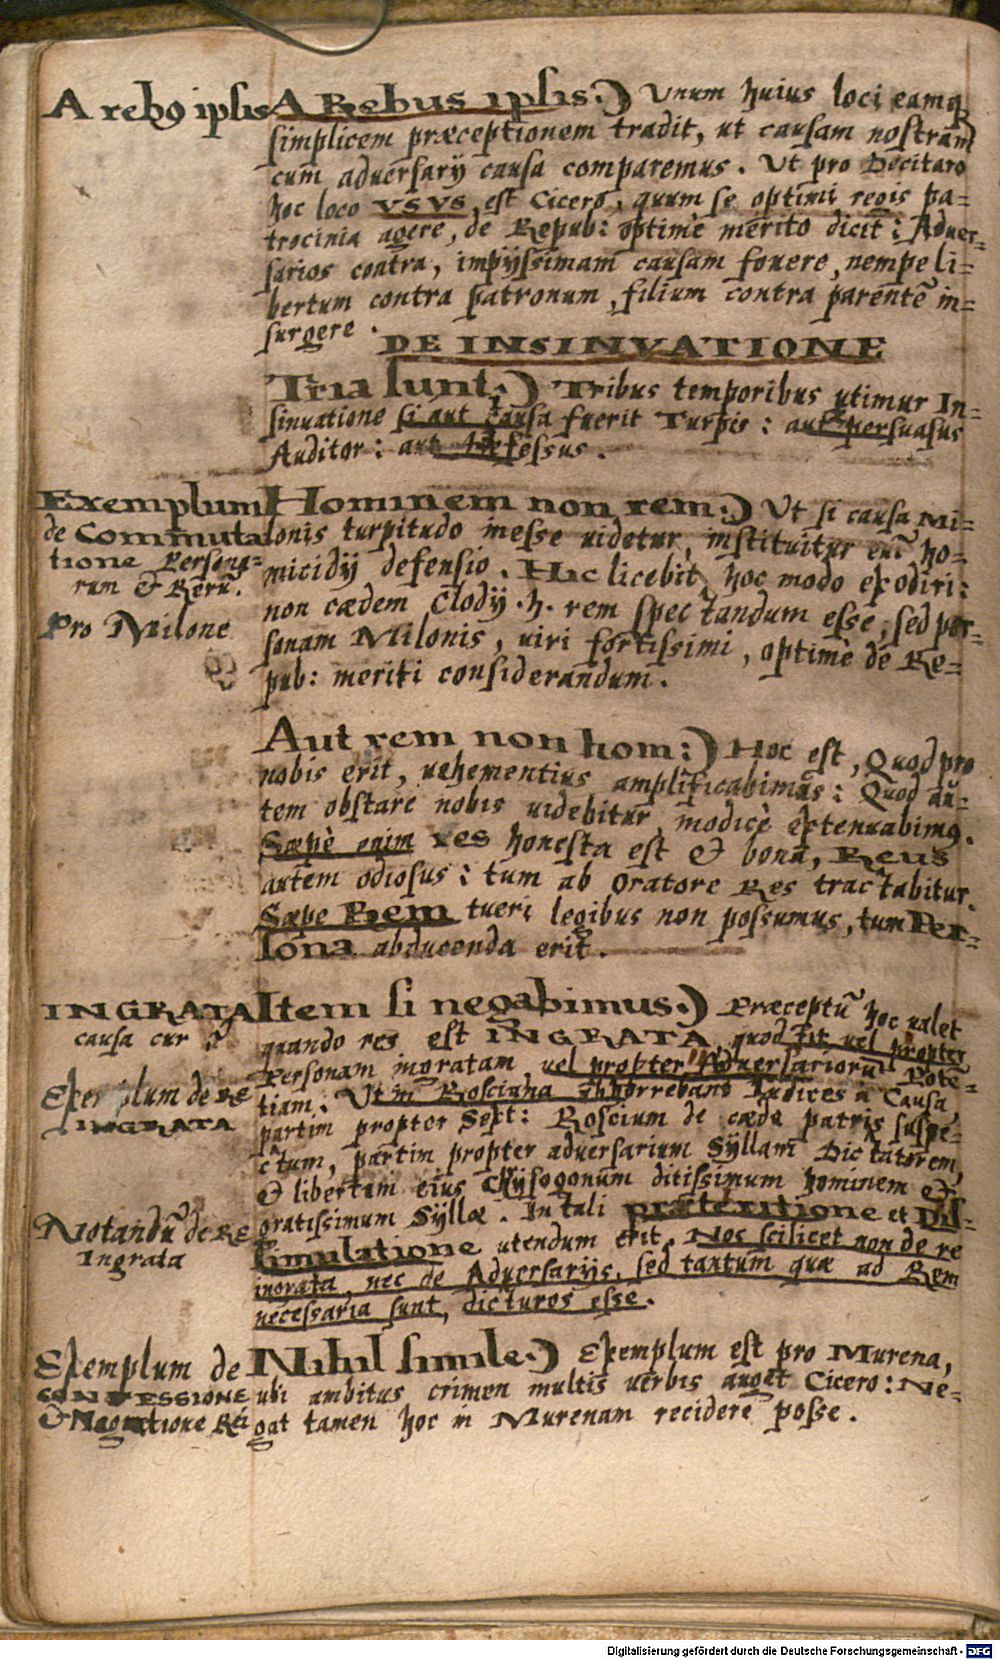 A rebꝰ ipsis
A Rebus ipsis:) Unum huius loci eamq́
simplicem præceptionem tradit, ut causam nostram
cum adversarij causa comparemus. Ut pro Decitaro
hoc loco VSVS est Cicero, quum se optimi regis pa=
trocinia agere, de Repub: optimè merito dicit: Aduer=
sarios contra, impijssimam causam fouere, nempe li=
bertum contra patronum, filium contra parentẽ in=
surgere.
DE INSINVATIONE
Tria sunt:) Tribus temporibus utimur In=
sinuatione si aut causa fuerit Turpis: aut persuasus
Auditor: aut defessus.
Exemplum
de Commuta
tione Persona=
rum & Rerũ.
Pro Milone
Hominem non rem:) Ut si causa Mi=
lonis turpitudo inesse uidetur, instituitur eni̅ ho=
micidij defensio. Hic licebit hoc modo exodiri:
non cædem Clodij .h. rem spectandum esse, sed per=
sonam Milonis, uiri fortissimi, optimè de Re=
pub: meriti considerandum.
Aut rem non hom:) Hoc est, Quod pro
nobis erit, uehementius amplificabimus: Quod au=
tem obstare nobis uidebitur modicè extenuabimꝰ.
Sæpè enim res honesta est & bona, Reus
autem odiosus: tum ab oratore Res tractabitur.
Sæpe Rem tueri legibus non possumus, tum Per=
sona abducenda erit.
INGRATA
causa cur ?
Exemplum de RE
INGRATA
Notandũ de RE
Ingrata
Item si negabimus:) Præceptũ hoc ualet
quando res est INGRATA, quod fit uel propter
Personam ingratam uel propter Aduersariorũ Pote=
tiam: Ut in Rosciana abhorrebant Iudices à Causa,
partim propter Sext: Roscium de cæde patris suspe=
ctum, partim propter aduersarium Sÿllam Dictatorem,
& libertum eius Chÿsogonum ditissimum hominem &
gratissimum Sÿllæ. In tali præteritione et Dis=
simulatione utendum erit. Nos scilicet non de re
ingrata, nec de Aduersarijs, sed tantum quæ ad Rem
necessaria sunt, dicturos esse.
Exemplum de
CONFESSIONE
& Negatione Rei
Nihil simile:) Exemplum est pro Murena,
ubi ambitus crimen multis uerbis auget Cicero: Ne=
gat tamen hoc in Murenam recidere posse.
Digitalisierung gefördert durch die Deutsche Forschungsgemeinschaft - DFG